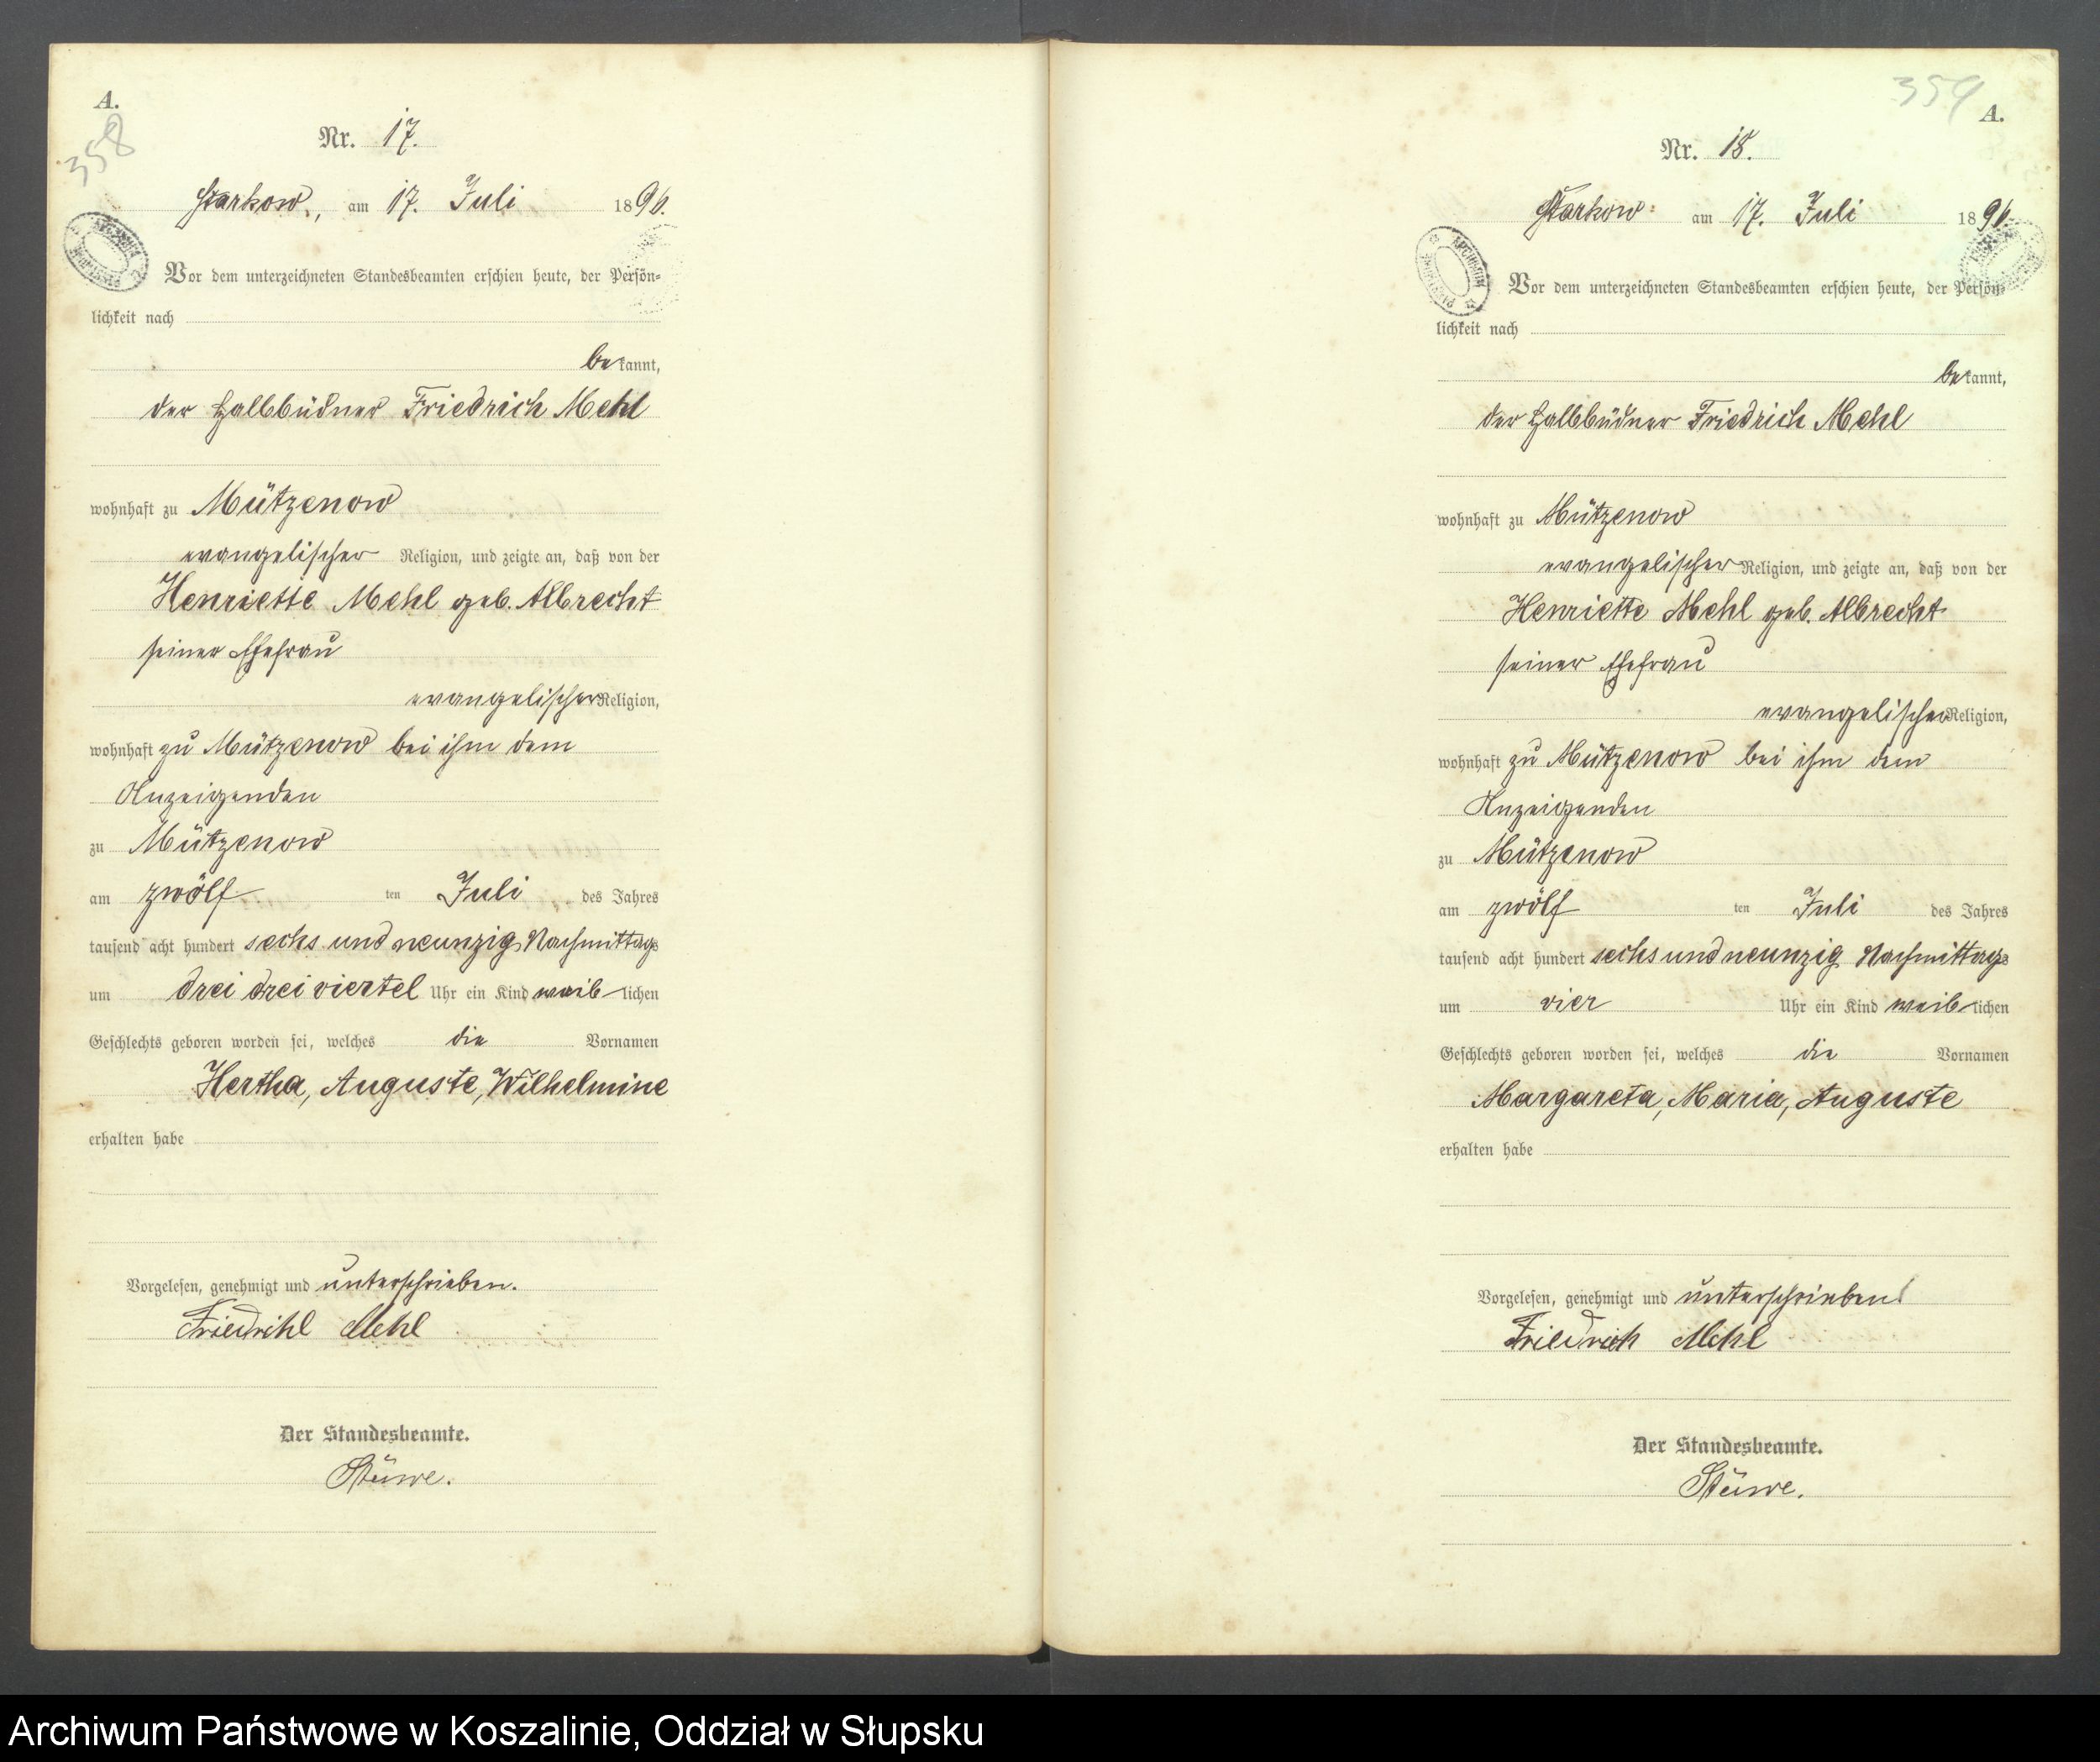 A.
358
Nr. 17.
Starkow, am 17. Juli 1896.
Vor dem unterzeichneten Standesbeamten erschien heute, der Persön-
lichkeit nach
bekannt,
der Halbbüdner Friedrich Mehl
wohnhaft zu Mützenow
evangelischer Religion, und zeigte an, daß von der
Henriette Mehl geb. Albrecht
seiner Ehefrau
evangelischer Religion,
wohnhaft zu Mützenow bei ihm dem
Anzeigenden
zu Mützenow
am zwölf ten Juli des Jahres
tausend acht hundert sechs und neunzig Nachmittags
um drei drei viertel Uhr ein Kind weiblichen
Geschlechts geboren worden sei, welches die Vornamen
Hertha, Auguste, Wilhelmine
erhalten habe
Vorgelesen, genehmigt und unterschrieben.
Friedrich Mehl
Der Standesbeamte.
Stüwe.
359
A.
Nr. 18.
Starkow am 17. Juli 1896.
Vor dem unterzeichneten Standesbeamten erschien heute, der Persön-
lichkeit nach
bekannt,
der Halbbüdner Friedrich Mehl
wohnhaft zu Mützenow
evangelischer Religion, und zeigte an, daß von der
Henriette Mehl geb. Albrecht
seiner Ehefrau
evangelischer Religion,
wohnhaft zu Mützenow bei ihm dem
Anzeigenden
zu Mützenow
am zwölf ten Juli des Jahres
tausend acht hundert sechs und neunzig Nachmittags
um vier Uhr ein Kind weiblichen
Geschlechts geboren worden sei, welches die Vornamen
Margareta, Maria, Auguste
erhalten habe
Vorgelesen, genehmigt und unterschrieben
Friedrich Mehl
Der Standesbeamte.
Stüwe.
Archiwum Państwowe w Koszalinie, Oddział w Słupsku